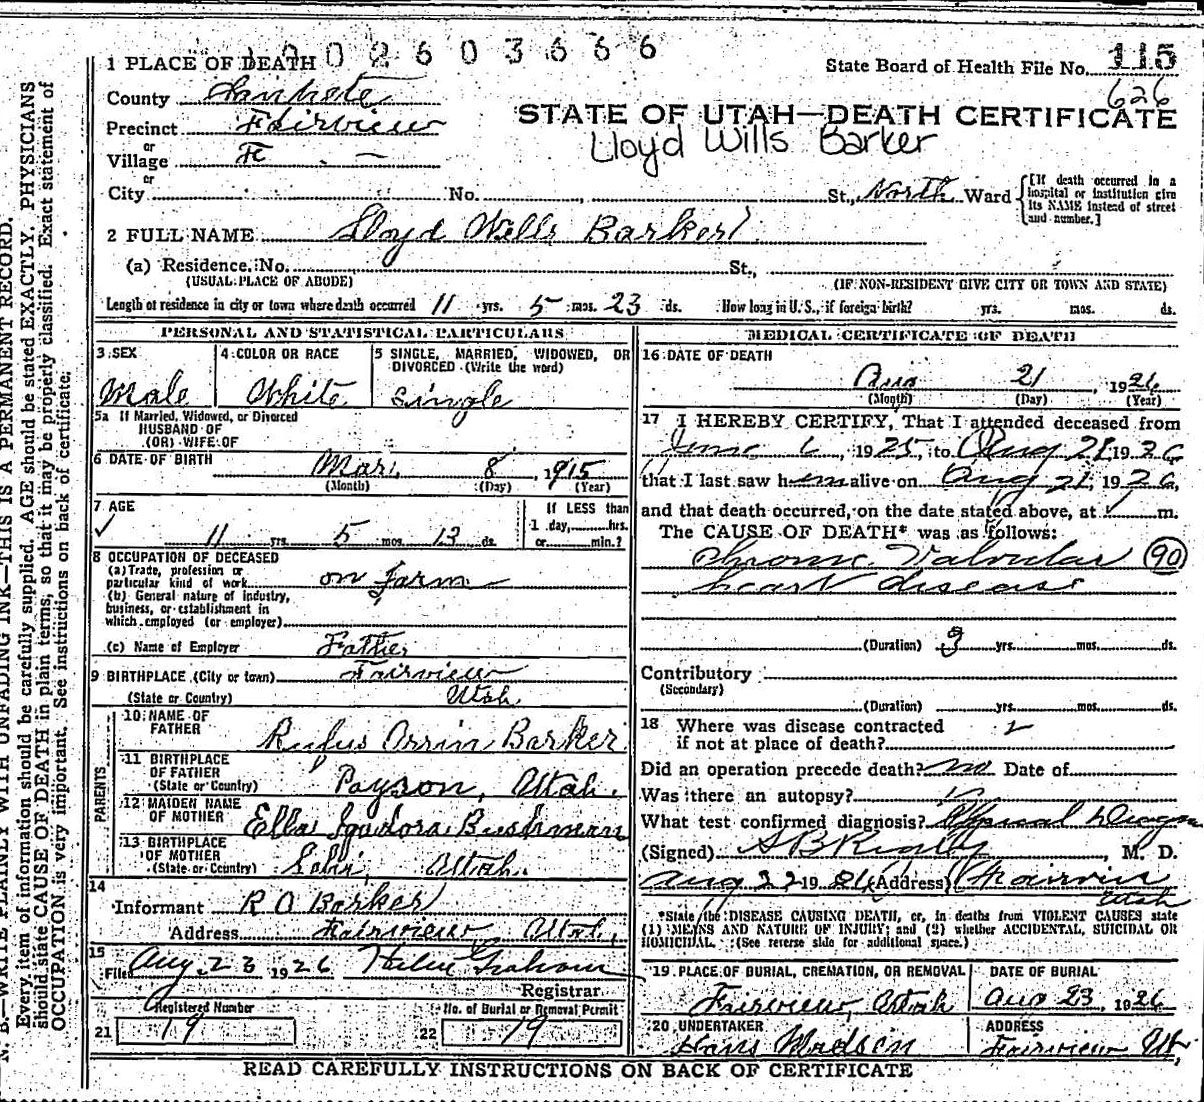 1 PLACE OF DEATH 1 9 0 2 6 0 3 6 6 6
State Board of Health File No. 115
626
County Sanpete
STATE OF UTAH—DEATH CERTIFICATE
Precinct Fairview
Lloyd Wills Barker
or
Village
or
City No. St., North Ward
[If death occurred in a hospital or institution give its NAME instead of street and number.]
2 FULL NAME Lloyd Wills Barker
(a) Residence. No. St.,
(USUAL PLACE OF ABODE) (IF NON-RESIDENT GIVE CITY OR TOWN AND STATE)
Length of residence in city or town where death occurred 11 yrs. 5 mos. 23 ds. How long in U.S., if foreign birth? yrs. mos. ds.
PERSONAL AND STATISTICAL PARTICULARS
3 SEX 4 COLOR OR RACE 5 SINGLE, MARRIED, WIDOWED, OR DIVORCED (Write the word)
Male White Single
5a If Married, Widowed, or Divorced
HUSBAND OF
(OR) WIFE OF
6 DATE OF BIRTH Mar. 8, 1915
(Month) (Day) (Year)
7 AGE If LESS than
11 yrs. 5 mos. 13 ds. 1 day, hrs.
or min.?
8 OCCUPATION OF DECEASED
(a) Trade, profession or
particular kind of work on farm
(b) General nature of industry,
business, or establishment in
which employed (or employer)
(c) Name of Employer Father
9 BIRTHPLACE (City or town) Fairview
(State or Country) Utah
PARENTS
10 NAME OF
FATHER Rufus Orrin Barker
11 BIRTHPLACE
OF FATHER
(State or Country) Payson, Utah.
12 MAIDEN NAME
OF MOTHER Ella Isadora Bushman
13 BIRTHPLACE
OF MOTHER
(State or Country) Lehi, Utah.
14
Informant R O Barker
Address Fairview, Utah.
15
Filed Aug 23 1926 Helen Graham
Registrar
Registered Number No. of Burial or Removal Permit
21 19 22 19
MEDICAL CERTIFICATE OF DEATH
16 DATE OF DEATH
Aug 21, 1926
(Month) (Day) (Year)
17 I HEREBY CERTIFY, That I attended deceased from
June 6, 1925, to Aug 21, 1926
that I last saw him alive on Aug 21, 1926,
and that death occurred, on the date stated above, at m.
The CAUSE OF DEATH* was as follows:
Chronic Valvular 90
heart disease
(Duration) 3 yrs. mos. ds.
Contributory
(Secondary)
(Duration) yrs. mos. ds.
18 Where was disease contracted
if not at place of death?
Did an operation precede death? no Date of
Was there an autopsy?
What test confirmed diagnosis? Physical Diagn
(Signed) , M. D.
Aug 22 1926 (Address) Fairview
Utah
*State the DISEASE CAUSING DEATH, or, in deaths from VIOLENT CAUSES state
(1) MEANS AND NATURE OF INJURY; and (2) whether ACCIDENTAL, SUICIDAL OR
HOMICIDAL. (See reverse side for additional space.)
19 PLACE OF BURIAL, CREMATION, OR REMOVAL DATE OF BURIAL
Fairview, Utah Aug 23, 1926
20 UNDERTAKER ADDRESS
Hans Madsen Fairview Ut.
READ CAREFULLY INSTRUCTIONS ON BACK OF CERTIFICATE
N. B.—WRITE PLAINLY WITH UNFADING INK—THIS IS A PERMANENT RECORD.
Every item of information should be carefully supplied. AGE should be stated EXACTLY. PHYSICIANS
should state CAUSE OF DEATH in plain terms, so that it may be properly classified. Exact statement of
OCCUPATION is very important. See instructions on back of certificate.